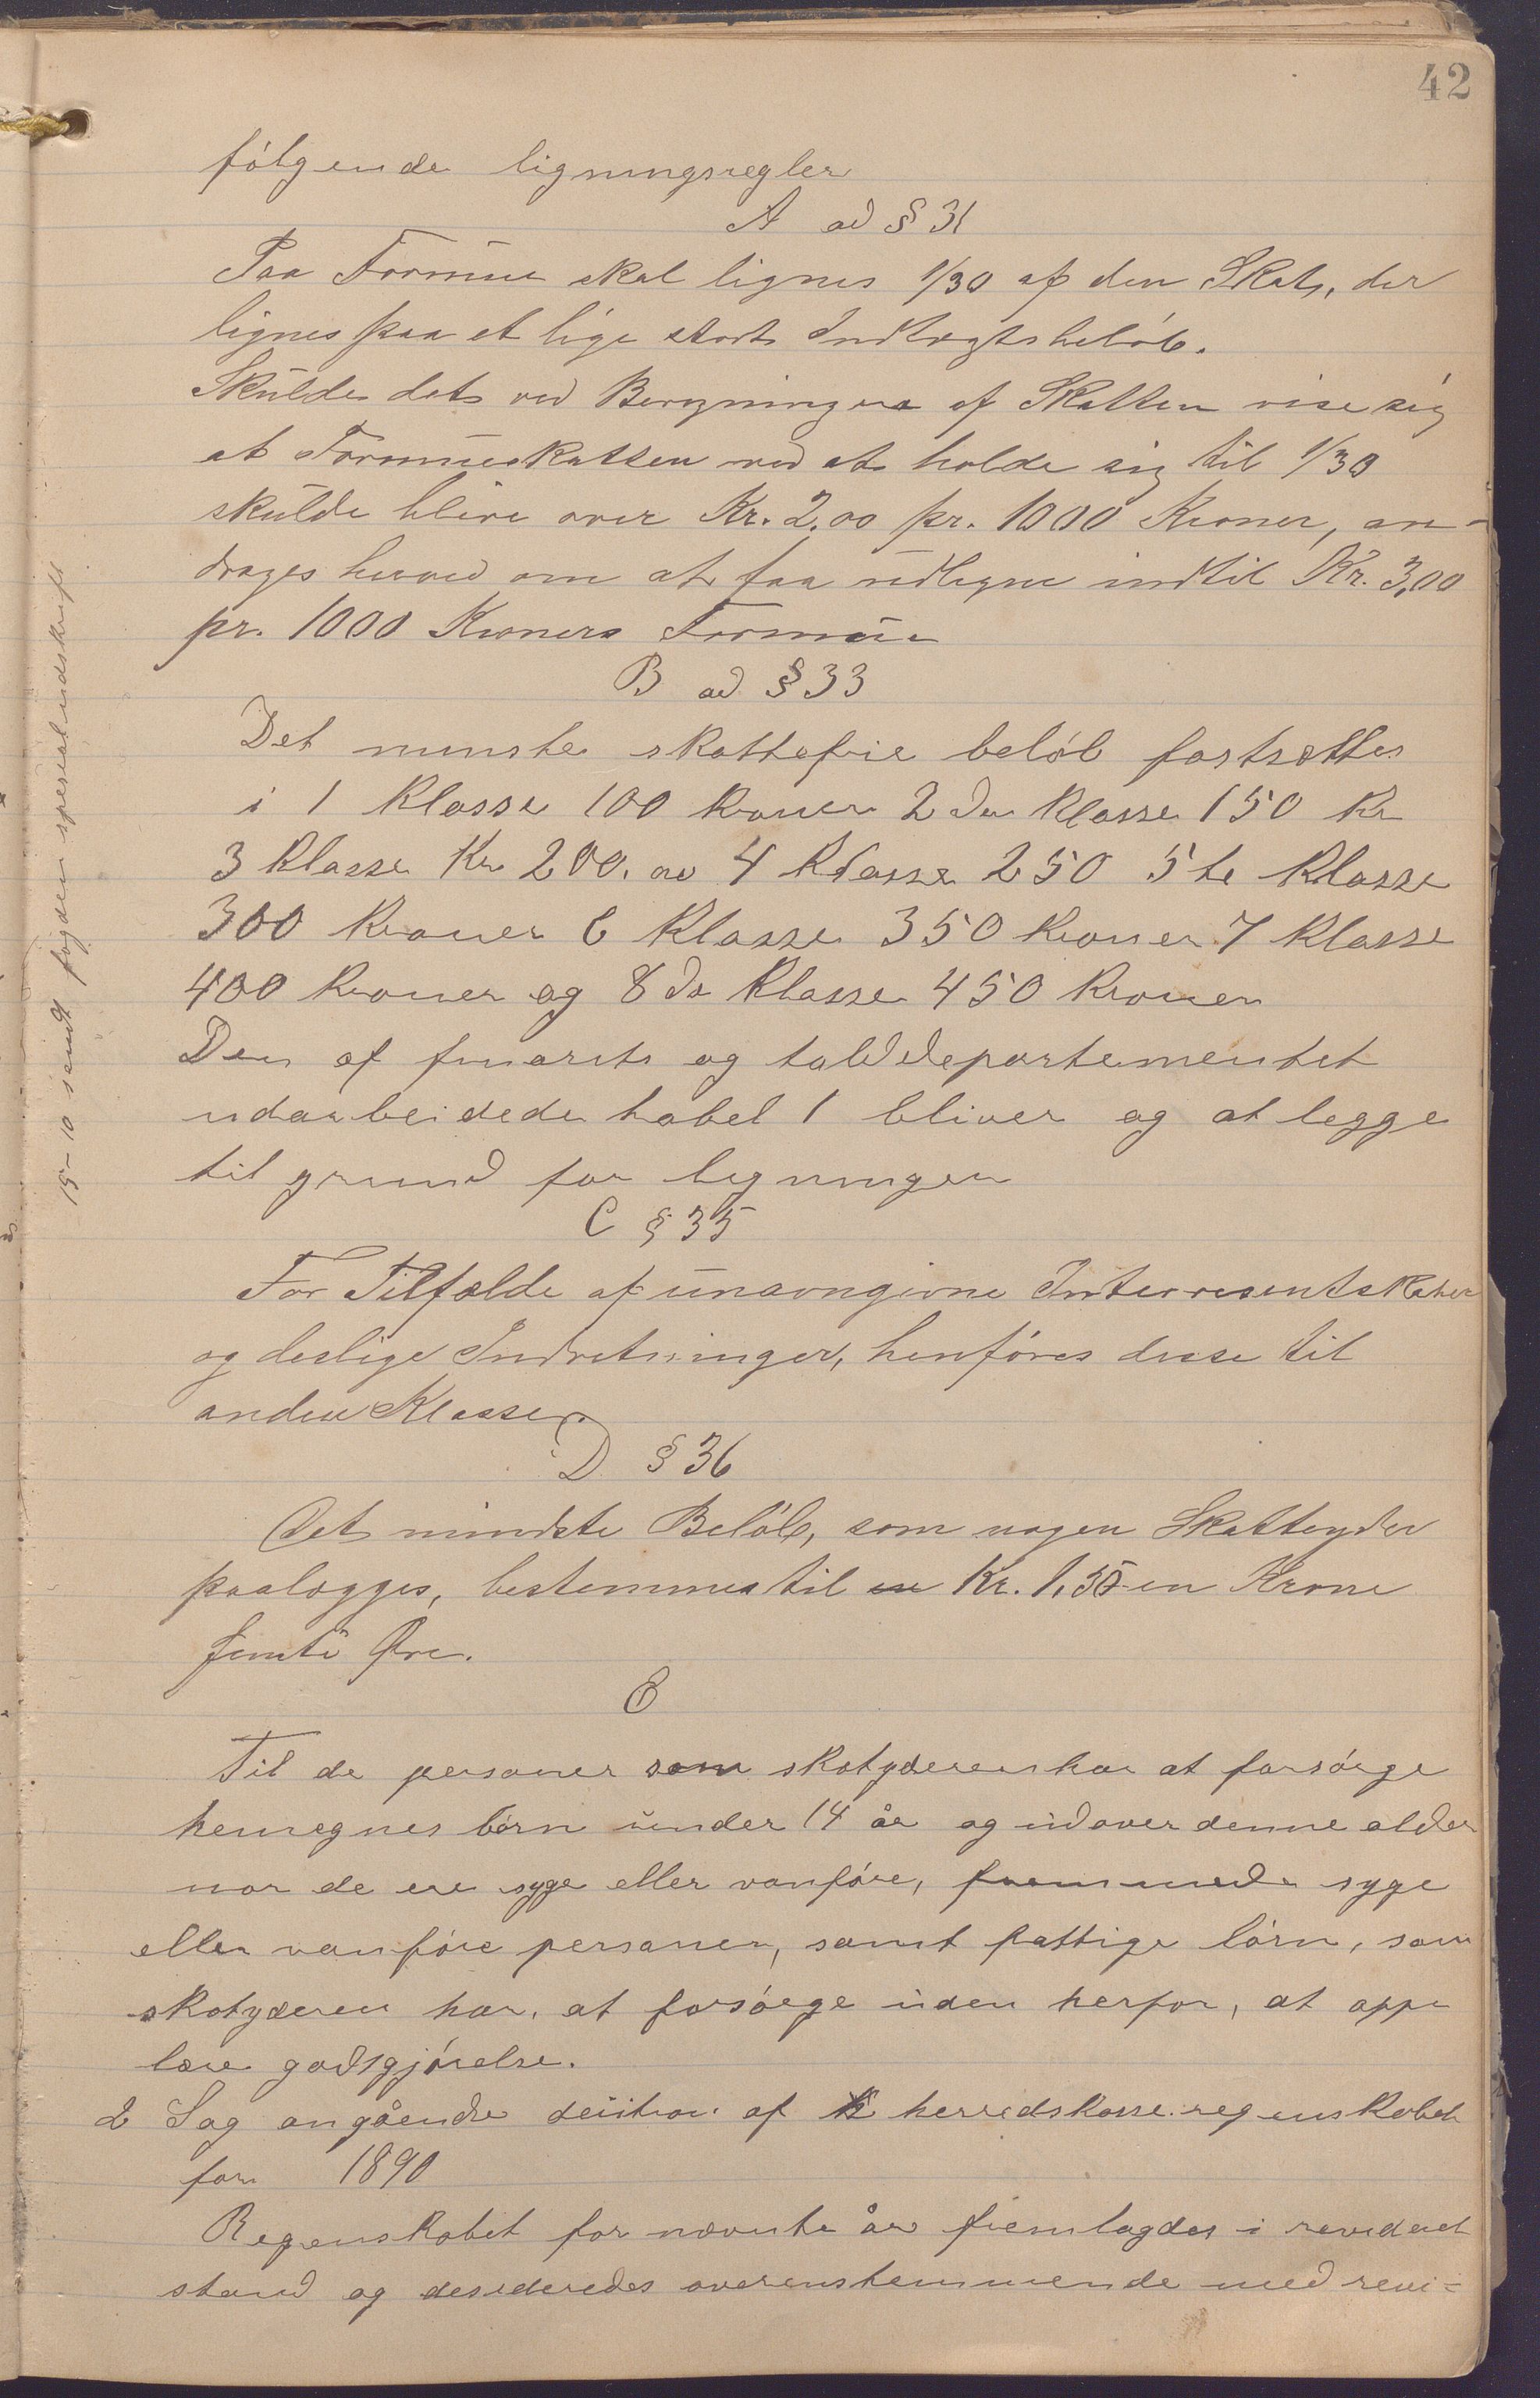 42
følgende ligningsregler
A ad § 31
Paa Formue skal lignes 1/30 af den Skat, der
lignes paa et lige stort Indtægtsbeløb.
Skulde det ved Beregningen af Skatten vise sig
at Formueskatten ved at holde sig til 1/30
skulde blive over Kr. 2,00 pr. 1000 Kroner, an-
drages herved om at faa udligne indtil Kr. 3,00
pr. 1000 Kroners Formue
B ad § 33
Det minste skattefrie beløb fastsættes
i 1 Klasse 100 Kroner 2den Klasse 150 Kr
3 Klasse Kr 200. 4 Klasse 250 5te Klasse
300 Kroner 6 Klasse 350 Kroner 7 Klasse
400 Kroner og 8de Klasse 450 Kroner
Den af finants og tolddepartementet
udarbeidede tabel 1 bliver og at legge
til grund for ligningen
C § 35
For Tilfælde af unavngivne Interresentskaber
og deslige Indretninger, henføres disse til
anden Klasse.
D § 36
Det mindste Beløb, som nogen Skatteyder
paalægges, bestemmes til en Kr. 1,35 en Krone
femti Øre.
E
Til de personer som skatyderen har at forsørge
henregnes børn under 14 år og udover denne alder
nar de ere syge eller vanføre, fremmede syge
eller vanføre personer, samt fattige børn, som
skatyderen har at forsørge uden herfor, at oppe
bære godtgjørelse.
2 Sag angående desition af herredskasseregenskabet
for 1890
Regenskabet for nævnte år fremlagdes i revideret
stand og desideredes overenstemmende med revi=
15-10 sendt fogden spesialudskrift